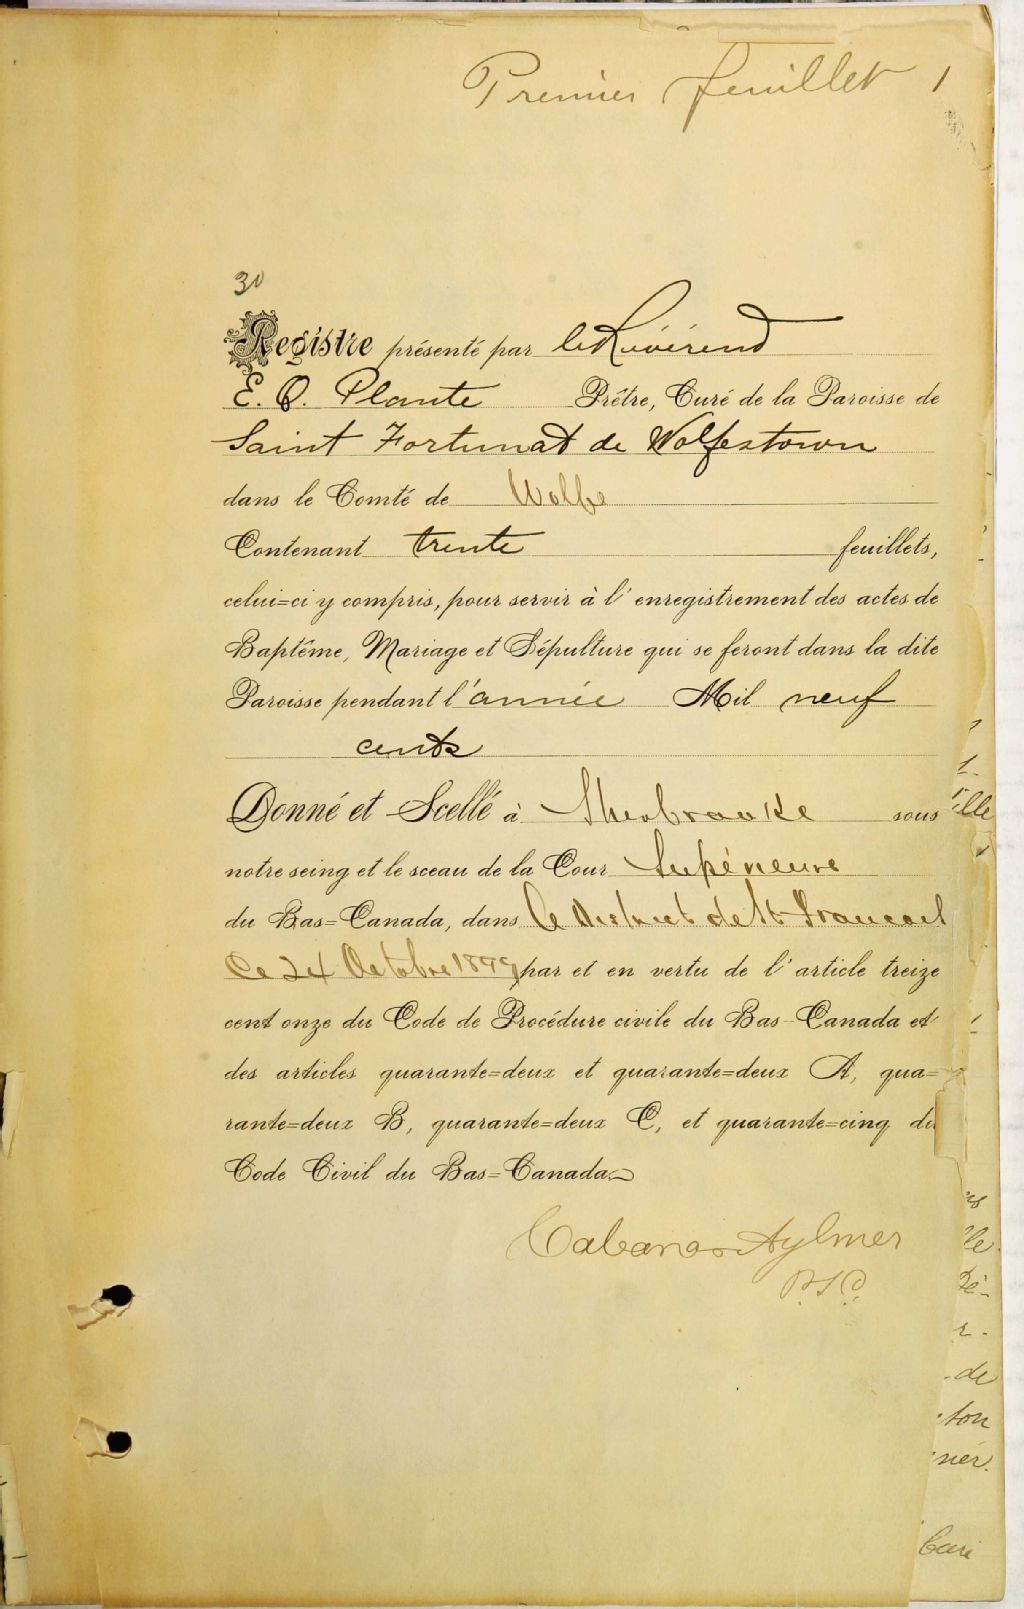 Premier feuillet 1
30
Registre présenté par le Révérend
E. O. Plante Prêtre, Curé de la Paroisse de
Saint Fortunat de Wolfestown
dans le Comté de Wolfe
Contenant trente feuillets,
celui=ci y compris, pour servir à l'enregistrement des actes de
Baptême, Mariage et Sépulture qui se feront dans la dite
Paroisse pendant l'année Mil neuf
cents
Donné et Scellé à Sherbrooke sous
notre seing et le sceau de la Cour Supérieure
du Bas=Canada, dans le District de St François
Ce 24 Octobre 1899 par et en vertu de l'article treize
cent onze du Code de Procédure civile du Bas-Canada et
des articles quarante=deux et quarante=deux A, qua=
rante=deux B, quarante=deux C, et quarante=cinq du
Code Civil du Bas=Canada.
Cabana & Aylmer
P.S.C.
de